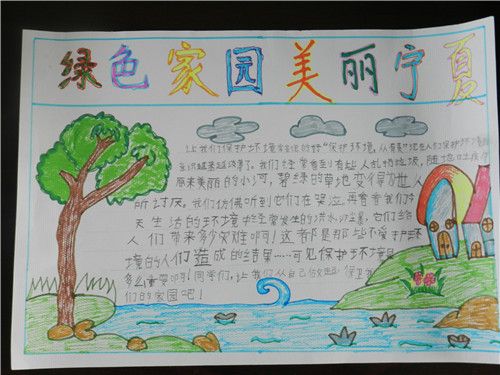 绿色家园美丽宁夏
让我们保护环境 保护环境,从
意识越来越淡薄了。我们经常看到有些人乱扔垃圾,随地吐痰
原来美丽的小河,碧绿的草地变得 世人
所讨厌,我们仿佛听到他们在哭泣,再看看我们今
天生活的环境中经常发生的洪水 沙尘暴,它们给
人们带来多少灾难啊!这都是那些不爱护环
境的人们造成的结果……可见保护环境是
多么重要啊!同学们,让我们从自己做起 保卫
们的家园吧!